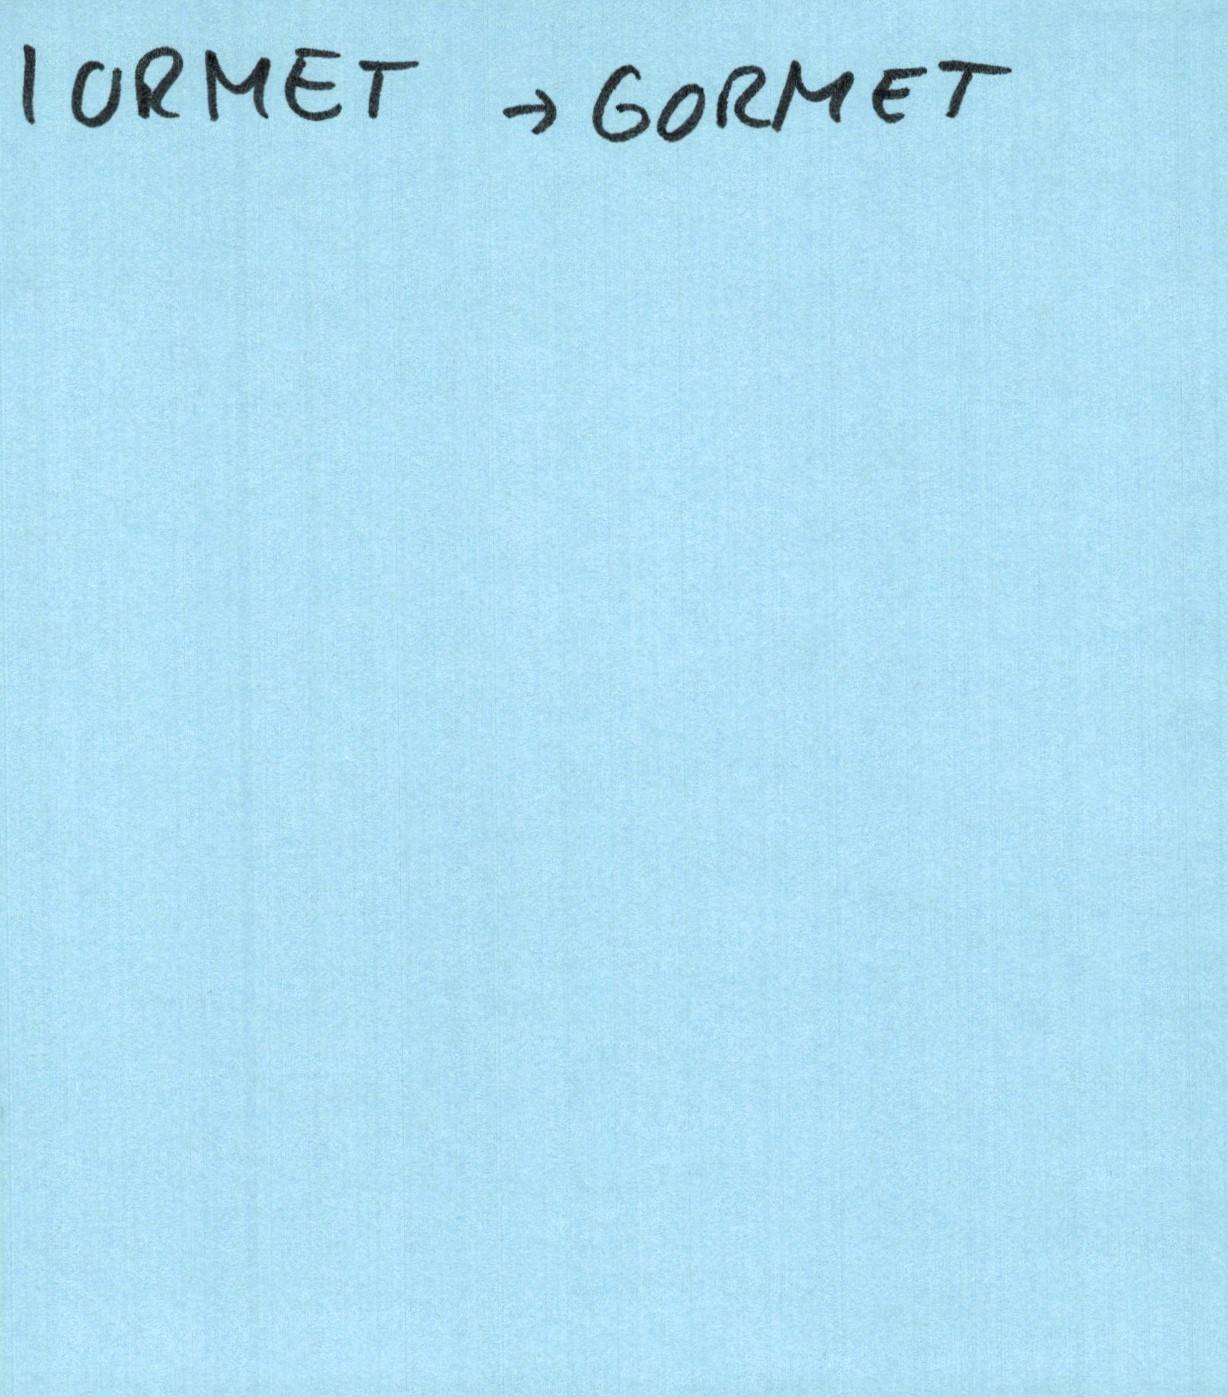 IORMET → GORMET